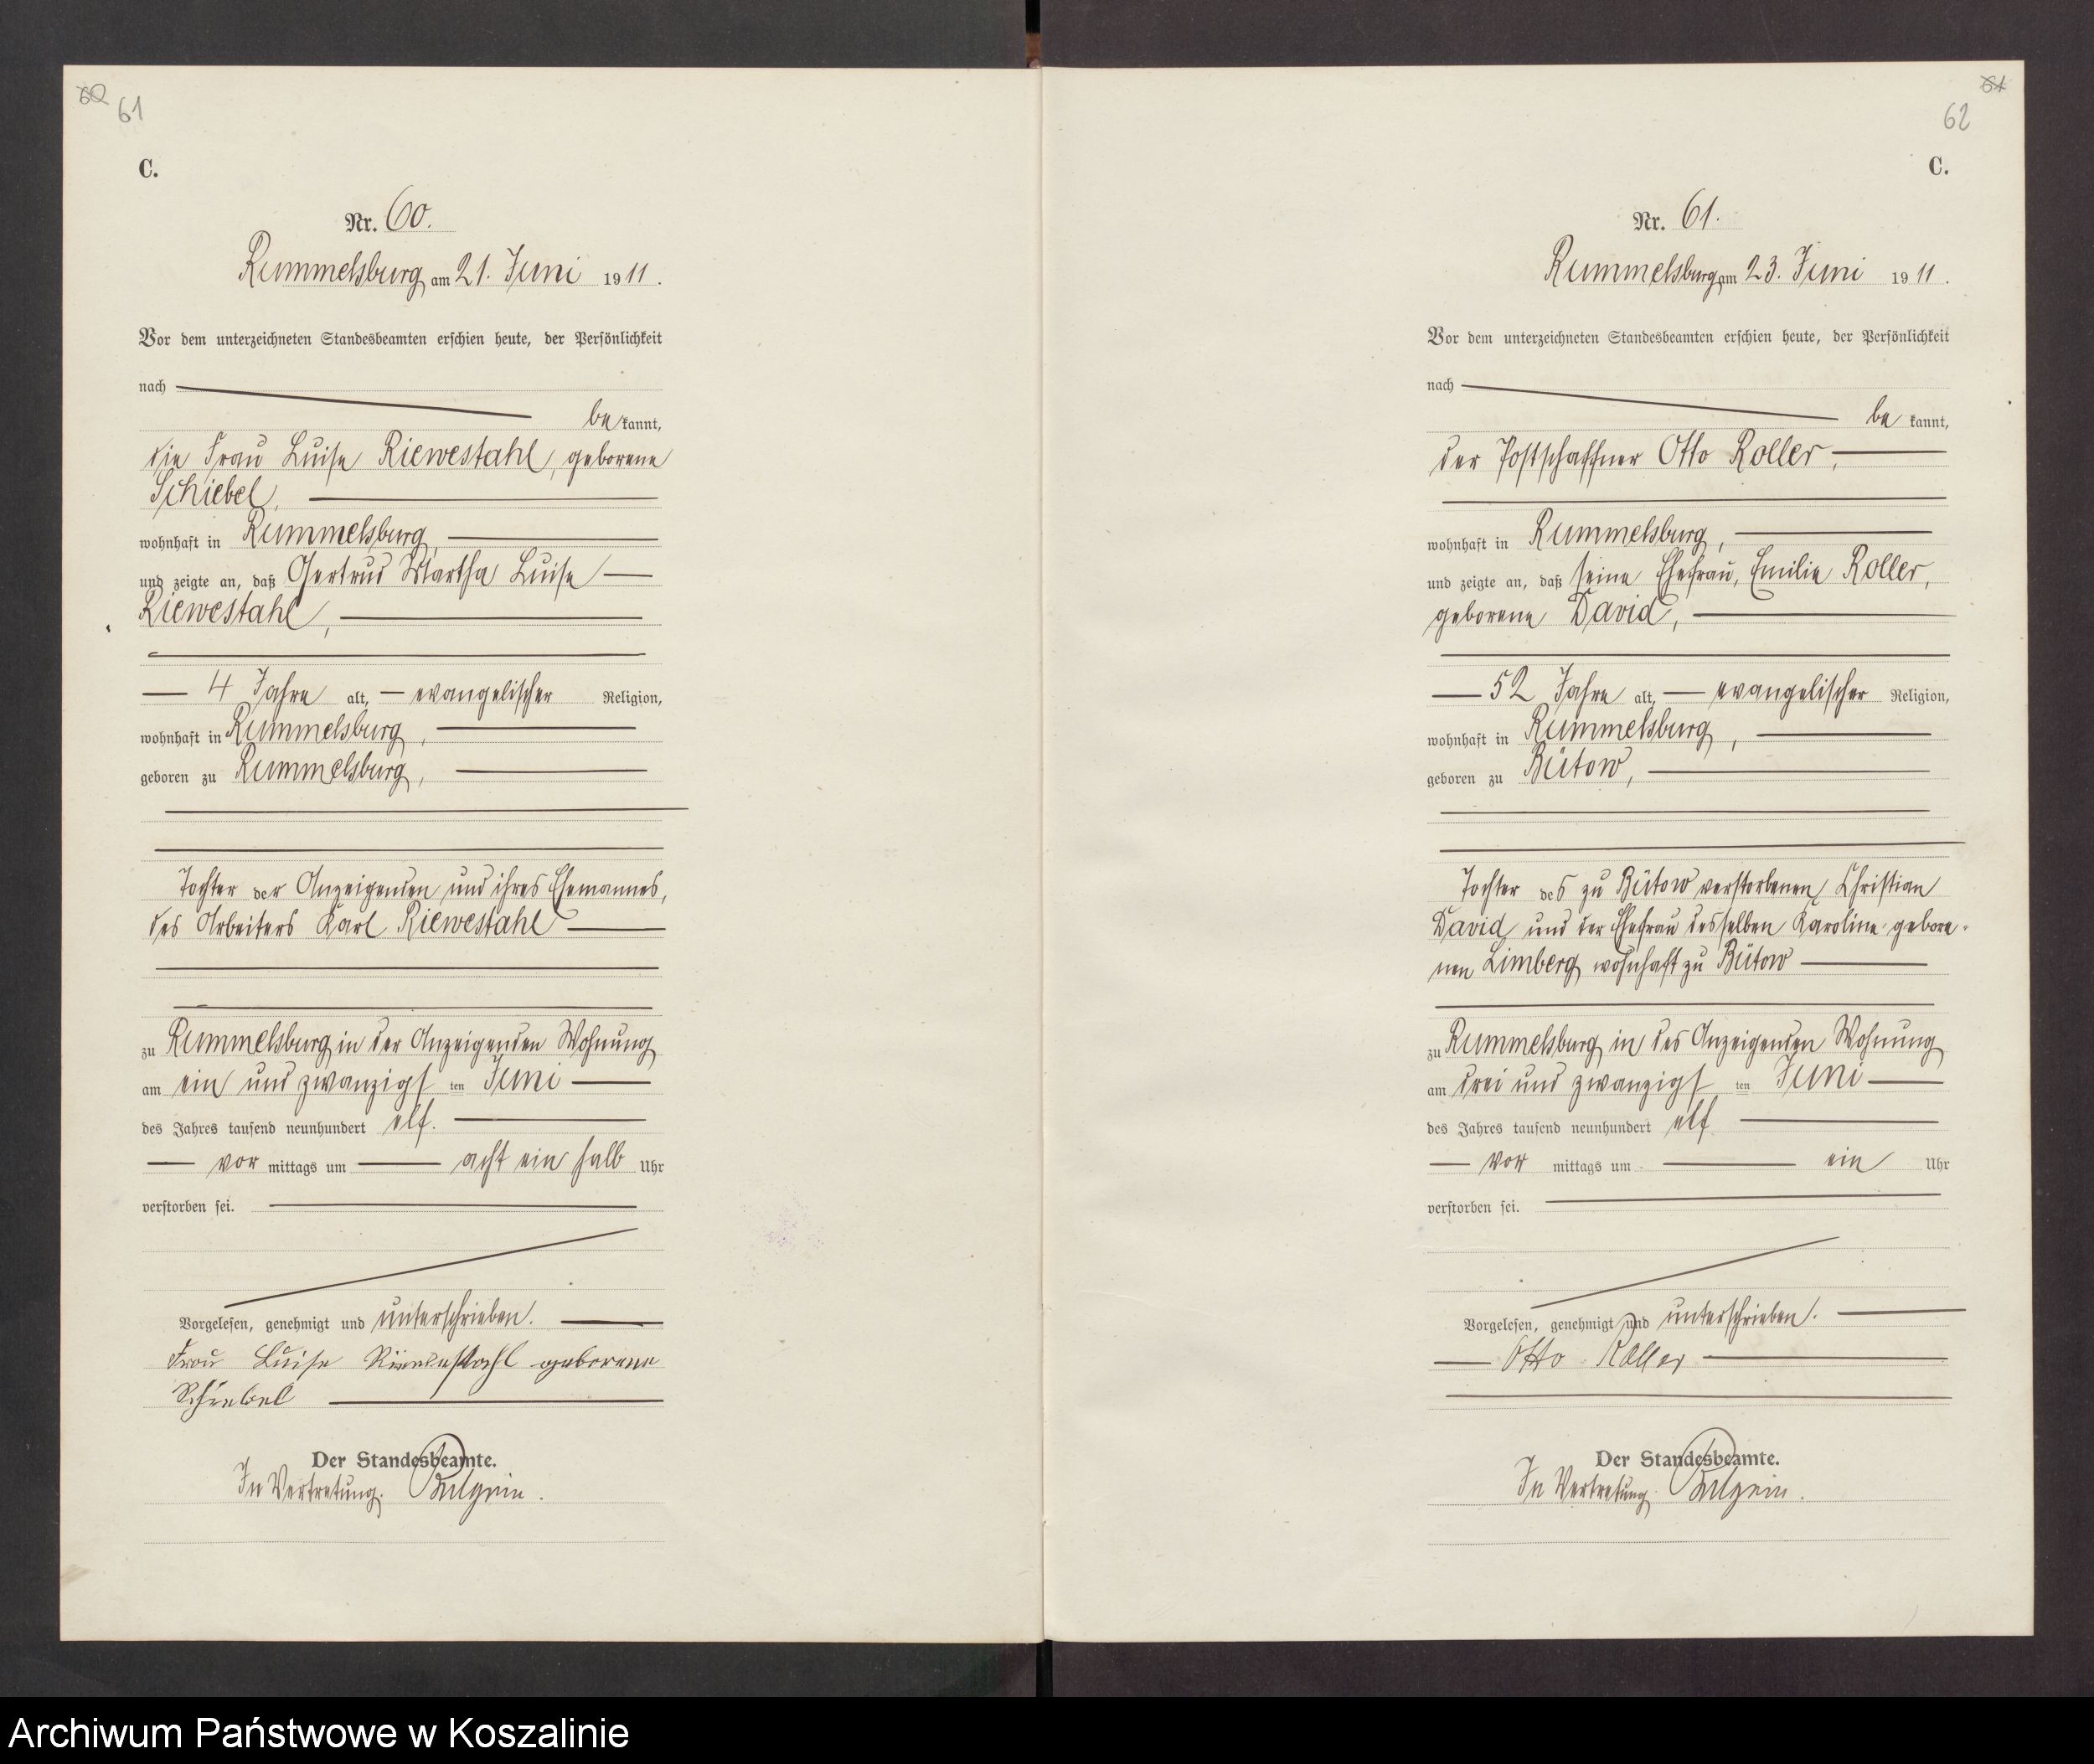 60
61
C.
Nr. 60.
Rummelsburg am 21. Juni 1911.
Vor dem unterzeichneten Standesbeamten erschien heute, der Persönlichkeit
nach
be kannt,
die Frau Luise Riewestahl, geborene
Schiebel,
wohnhaft in Rummelsburg,
und zeigte an, daß Gertrud Martha Luise
Riewestahl,
4 Jahre alt, evangelischer Religion,
wohnhaft in Rummelsburg,
geboren zu Rummelsburg,
Tochter der Anzeigenden und ihres Ehemannes,
des Arbeiters Karl Riewestahl
zu Rummelsburg in der Anzeigenden Wohnung
am ein und zwanzigs ten Juni
des Jahres tausend neunhundert elf.
vor mittags um acht ein halb Uhr
verstorben sei.
Vorgelesen, genehmigt und unterschrieben.
Frau Luise Riewestahl geborene
Schiebel
Der Standesbeamte.
In Vertretung.
61
62
C.
Nr. 61.
Rummelsburg am 23. Juni 1911.
Vor dem unterzeichneten Standesbeamten erschien heute, der Persönlichkeit
nach
be kannt,
der Postschaffner Otto Roller,
wohnhaft in Rummelsburg,
und zeigte an, daß seine Ehefrau, Emilie Roller,
geborene David,
52 Jahre alt, evangelischer Religion,
wohnhaft in Rummelsburg,
geboren zu Bütow,
Tochter des zu Bütow verstorbenen Christian
David und der Ehefrau desselben Karoline gebore-
nen Limberg wohnhaft zu Bütow
zu Rummelsburg in des Anzeigenden Wohnung
am drei und zwanzigs ten Juni
des Jahres tausend neunhundert elf
vor mittags um ein Uhr
verstorben sei.
Vorgelesen, genehmigt und unterschrieben.
Otto Roller
Der Standesbeamte.
In Vertretung.
Archiwum Państwowe w Koszalinie